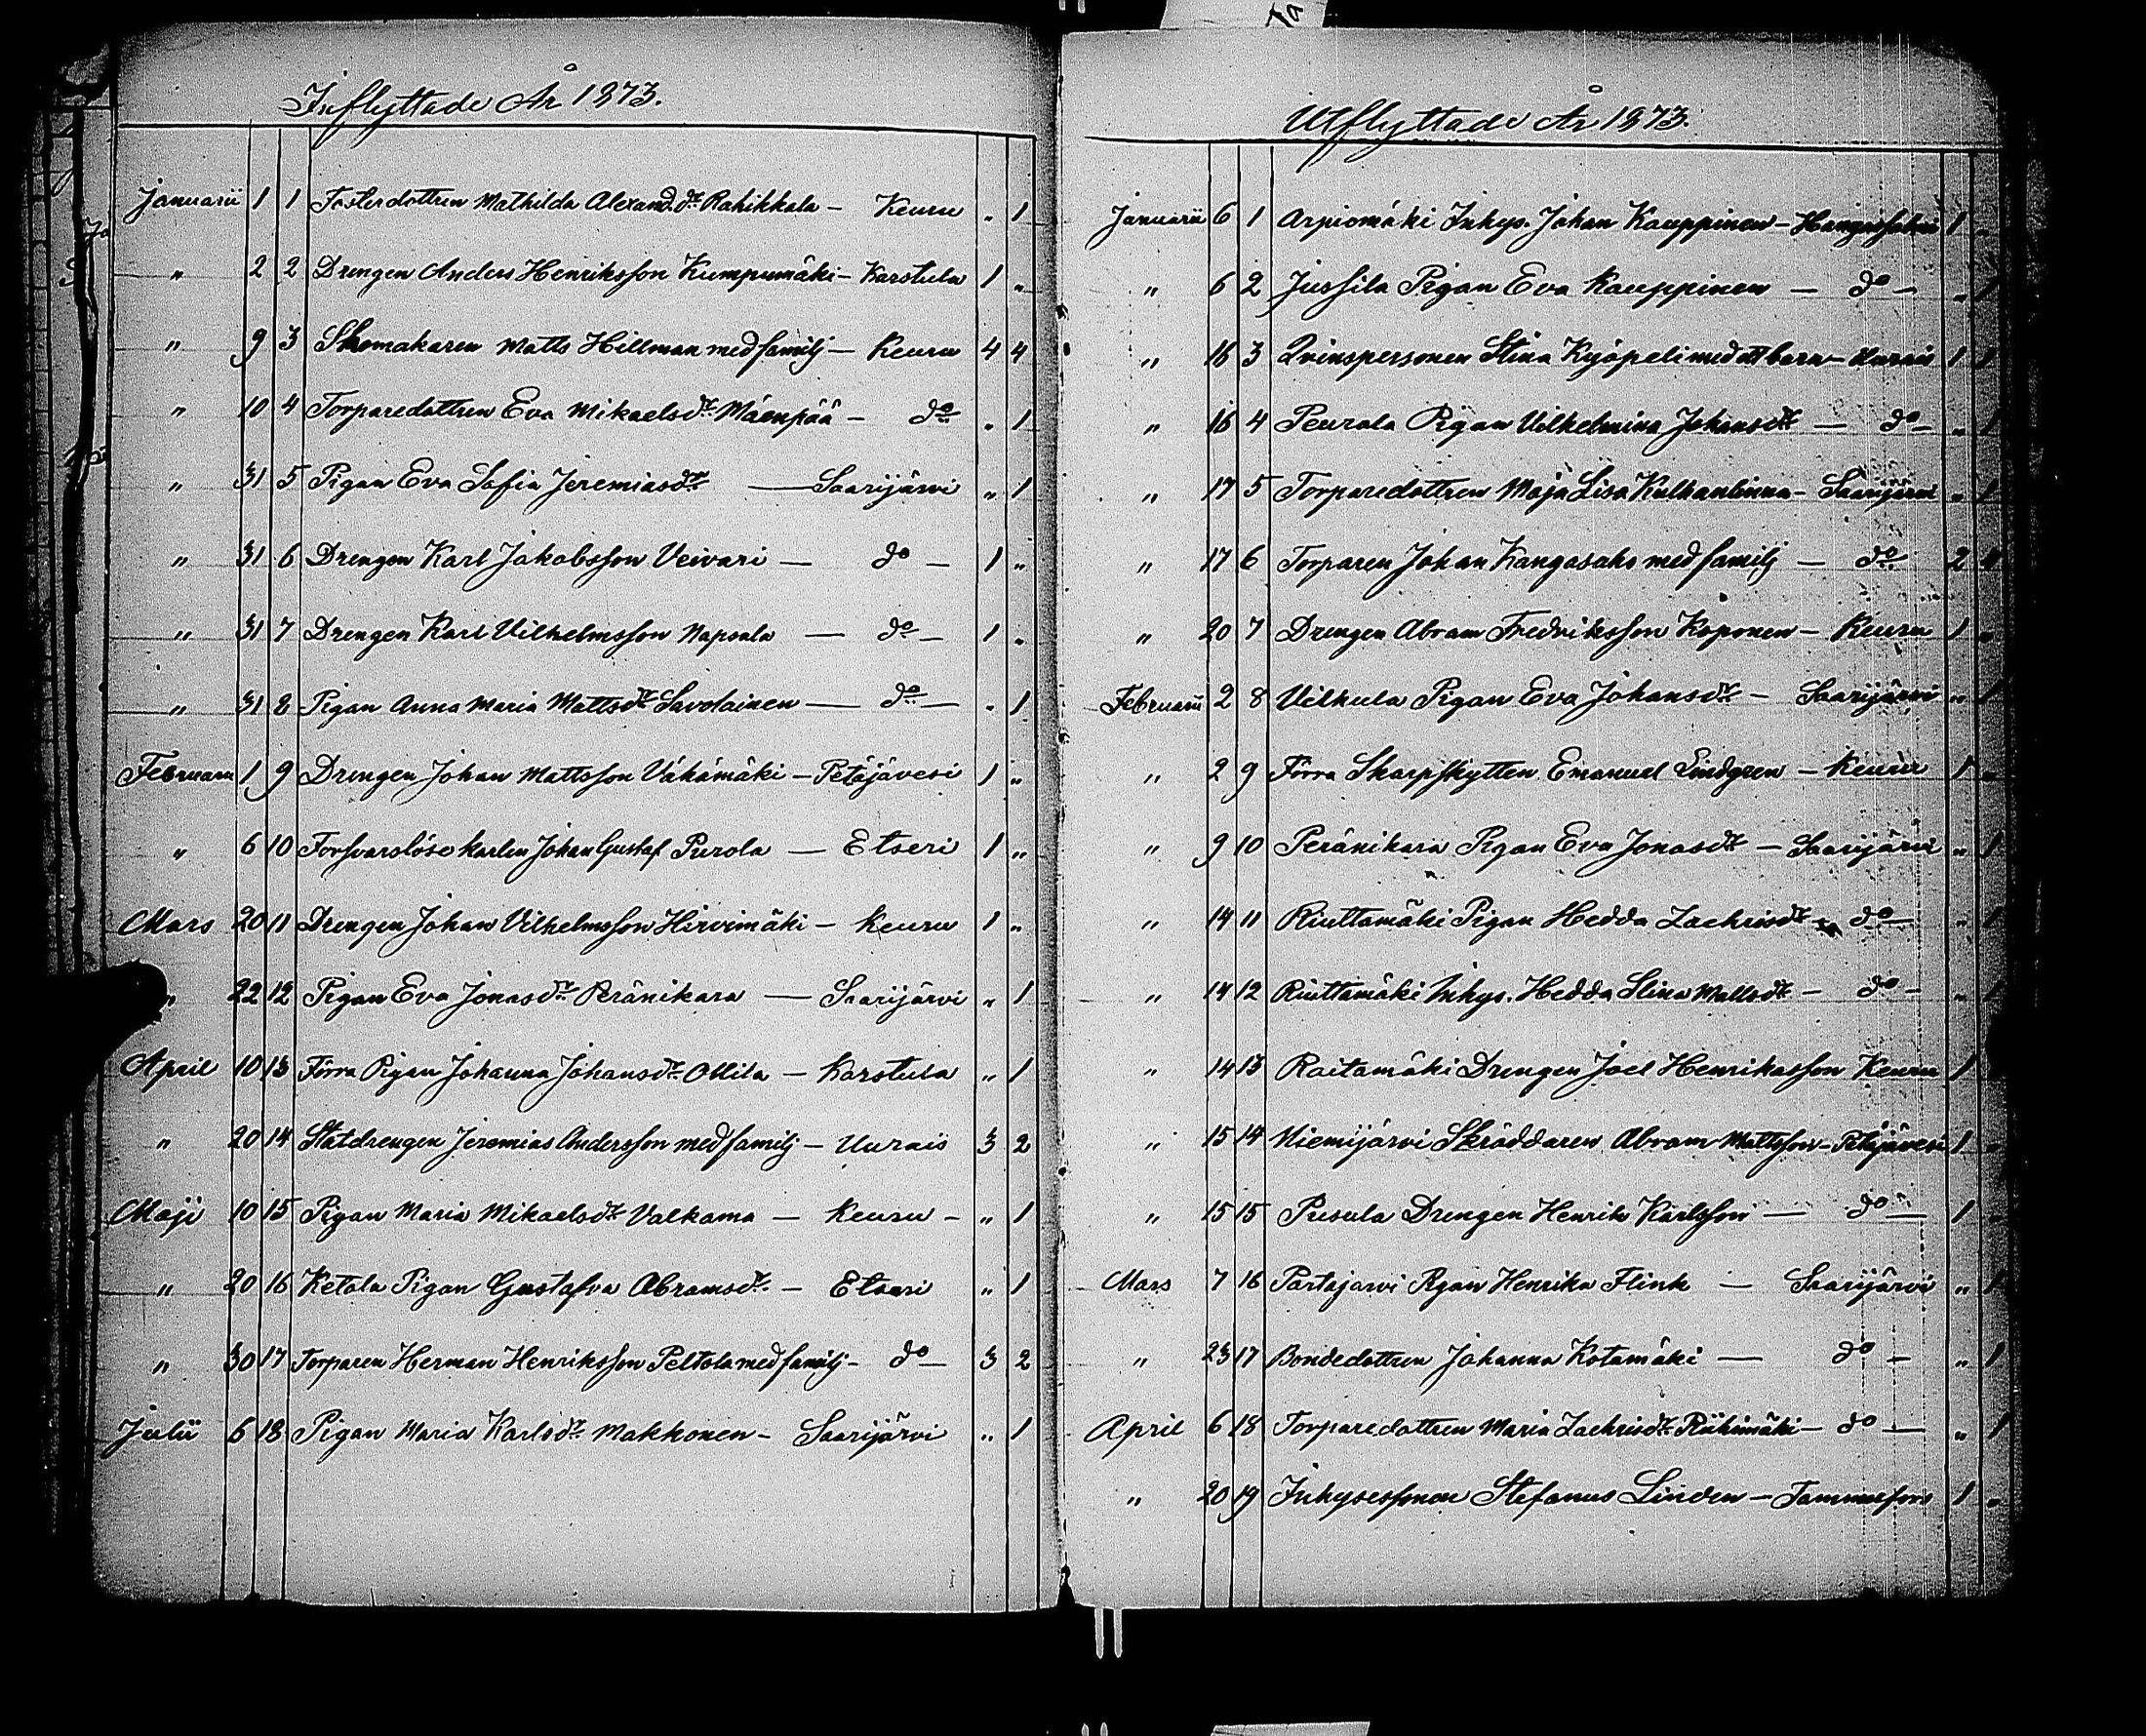 Inflyttade År 1873.
Januarii 1 1 Fosterdottren Mathilda Alexand.dr Rahikkala – Keuru „ 1
„ 2 2 Drengen Anders Henriksson Kumpumäki – Karstula 1 „
„ 9 3 Skomakaren Matts Hillman med familj – Keuru 4 4
„ 10 4 Torparedottren Eva Mikaelsdr Mäenpää – do „ 1
„ 31 5 Pigan Eva Sofia Jeremiasdr — Saarijärvi „ 1
„ 31 6 Drengen Karl Jakobsson Veivari — do – 1 „
„ 31 7 Drengen Karl Vilhelmsson Napsala — do – 1 „
„ 31 8 Pigan Anna Maria Mattsdr Savolainen — do — „ 1
Februarii 1 9 Drengen Johan Mattsson Vähämäki – Petäjävesi 1 „
„ 6 10 Försvarslöse karlen Johan Gustaf Purola — Etseri 1 „
Mars 20 11 Drengen Johan Vilhelmsson Hirvimäki – Keuru 1 „
„ 22 12 Pigan Eva Jonasdr Peränikara — Saarijärvi „ 1
April 10 13 Förra Pigan Johanna Johansdr Ollila – Karstula „ 1
„ 20 14 Statdrengen Jeremias Andersson med familj – Uurais 3 2
Maji 10 15 Pigan Maria Mikaelsdr Valkama — Keuru – „ 1
„ 20 16 Ketola Pigan Gustafva Abramsdr. – Etseri „ 1
„ 30 17 Torparen Herman Henriksson Peltola med familj – do – 3 2
Julii 6 18 Pigan Maria Karlsdr Makkonen – Saarijärvi „ 1
Utflyttade År 1873.
Januarii 6 1 Arpiomäki Inhys. Johan Kauppinen – 1 „
„ 6 2 Jussila Pigan Eva Kauppinen — do – „ 1
„ 16 3 Qvinspersonen Stina Kyöpeli med ett barn – Uurais 1 1
„ 16 4 Peurala Pigan Vilhelmina Johansdr — do – „ 1
„ 17 5 Torparedottren Maja Lisa – Saarijärvi „ 1
„ 17 6 Torparen Johan Kangasaho med familj — do 2
„ 20 7 Drengen Abram Fredriksson Koponen – Keuru 1 „
Februarii 2 8 Vilkula Pigan Eva Johansdr – Saarijärvi „ 1
„ 2 9 Förra Skarpskytten Emanuel Lindgren – Keuru 1 „
„ 9 10 Peränikara Pigan Eva Jonasdr – Saarijärvi „ 1
„ 14 11 Riuttamäki Pigan Hedda Zachrisdr – do — „ 1
„ 14 12 Riuttamäki Inhys. Hedda Stina Mattsdr – do – „ 1
„ 14 13 Raitamäki Drengen Joel Henriksson Keuru 1
„ 15 14 Niemijärvi Skräddaren Abram Mattsson – Petäjävesi 1 „
„ 15 15 Pusula Drengen Henrik Karlsson — do — 1 „
Mars 7 16 Partajarvi Pigan Henrika Flink — Saarijärvi „ 1
„ 23 17 Bondedottren Johanna Kotamäki — do – „ 1
April 6 18 Torparedottren Maria Zachrisdr Riihimäki – do — „ 1
„ 20 19 Inhysessonen Stefanus Linden – Tammerfors 1 „